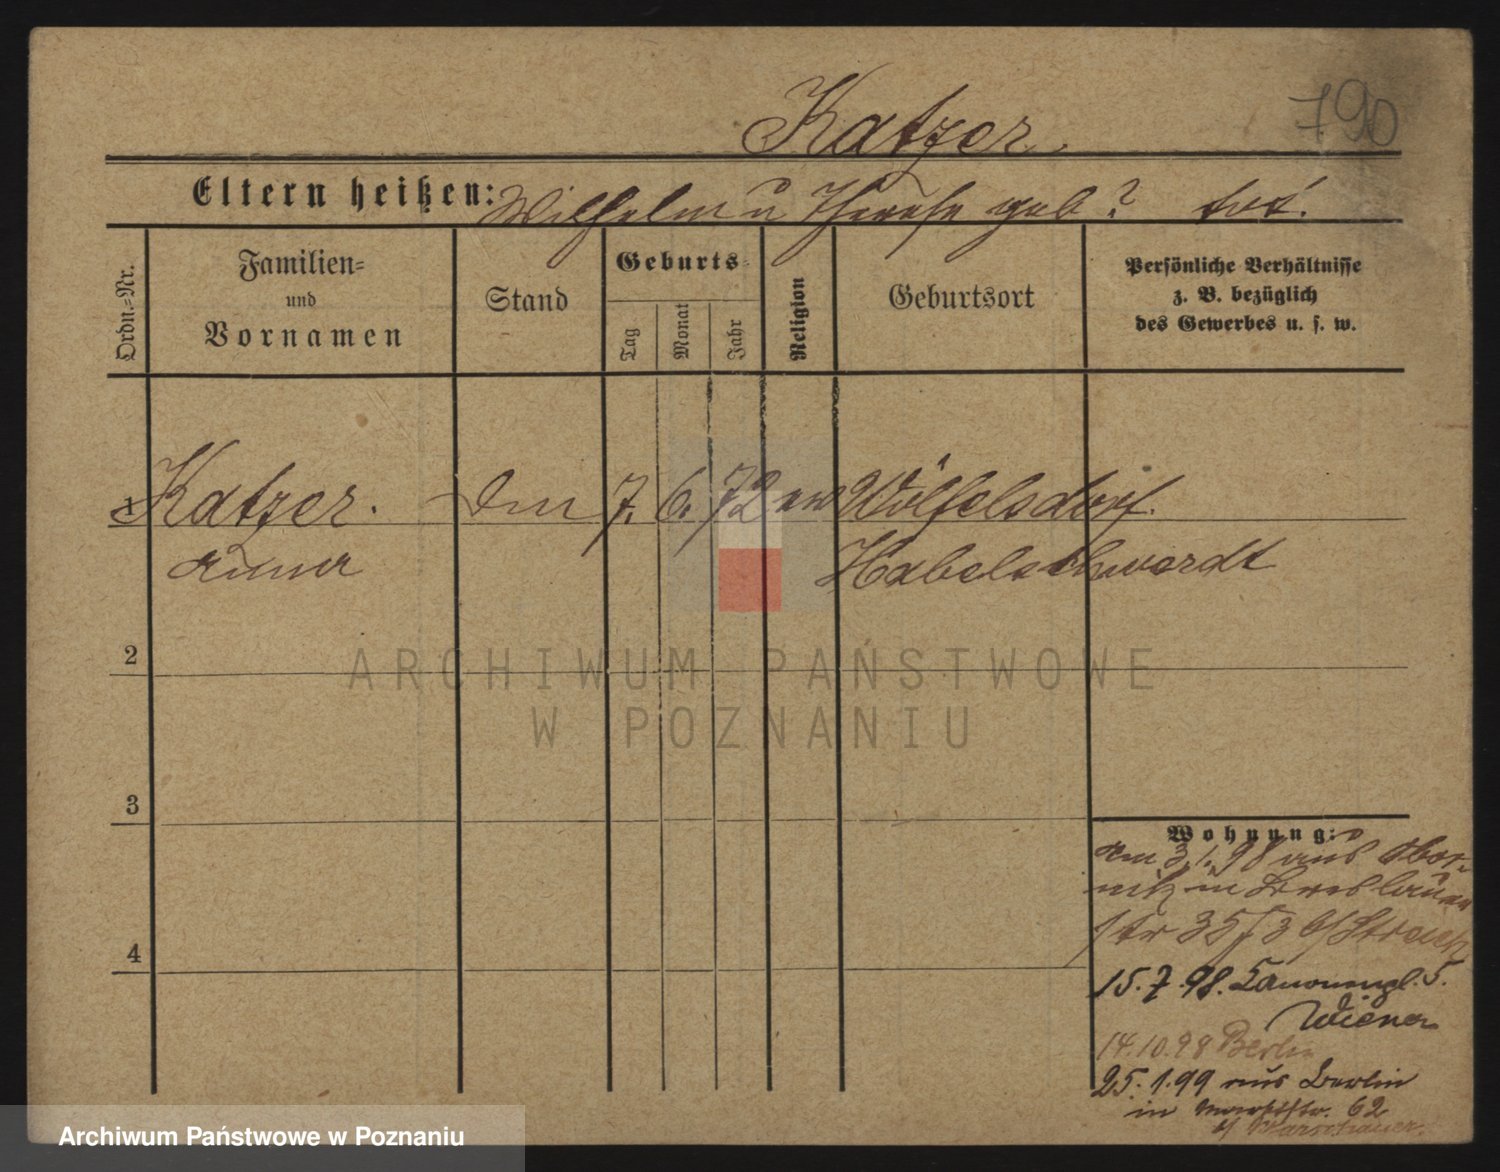 790
Katzer.
Eltern heißen: Wilhelm u Therese geb ? tot.
Ordn.=Nr.
Familien=
und
Vornamen
Stand
Geburts=
Tag
Monat
Jahr
Religion
Geburtsort
Persönliche Verhältnisse
z. B. bezüglich
des Gewerbes u. s. w.
1 Katzer. 7. 6. 72 ev Wölfelsdorf.
Anna Habelschwerdt
2
3
4
Wohnung:
am 3.1.98 aus Obor=
nik in Breslauer
str 35/3
15.7.98. Kanonenpl. 5.
Wiener
14.10.98 Berlin
25.1.99 aus Berlin
in Marktstr. 62
b/ Warschauer.
ARCHIWUM PAŃSTWOWE
W POZNANIU
Archiwum Państwowe w Poznaniu